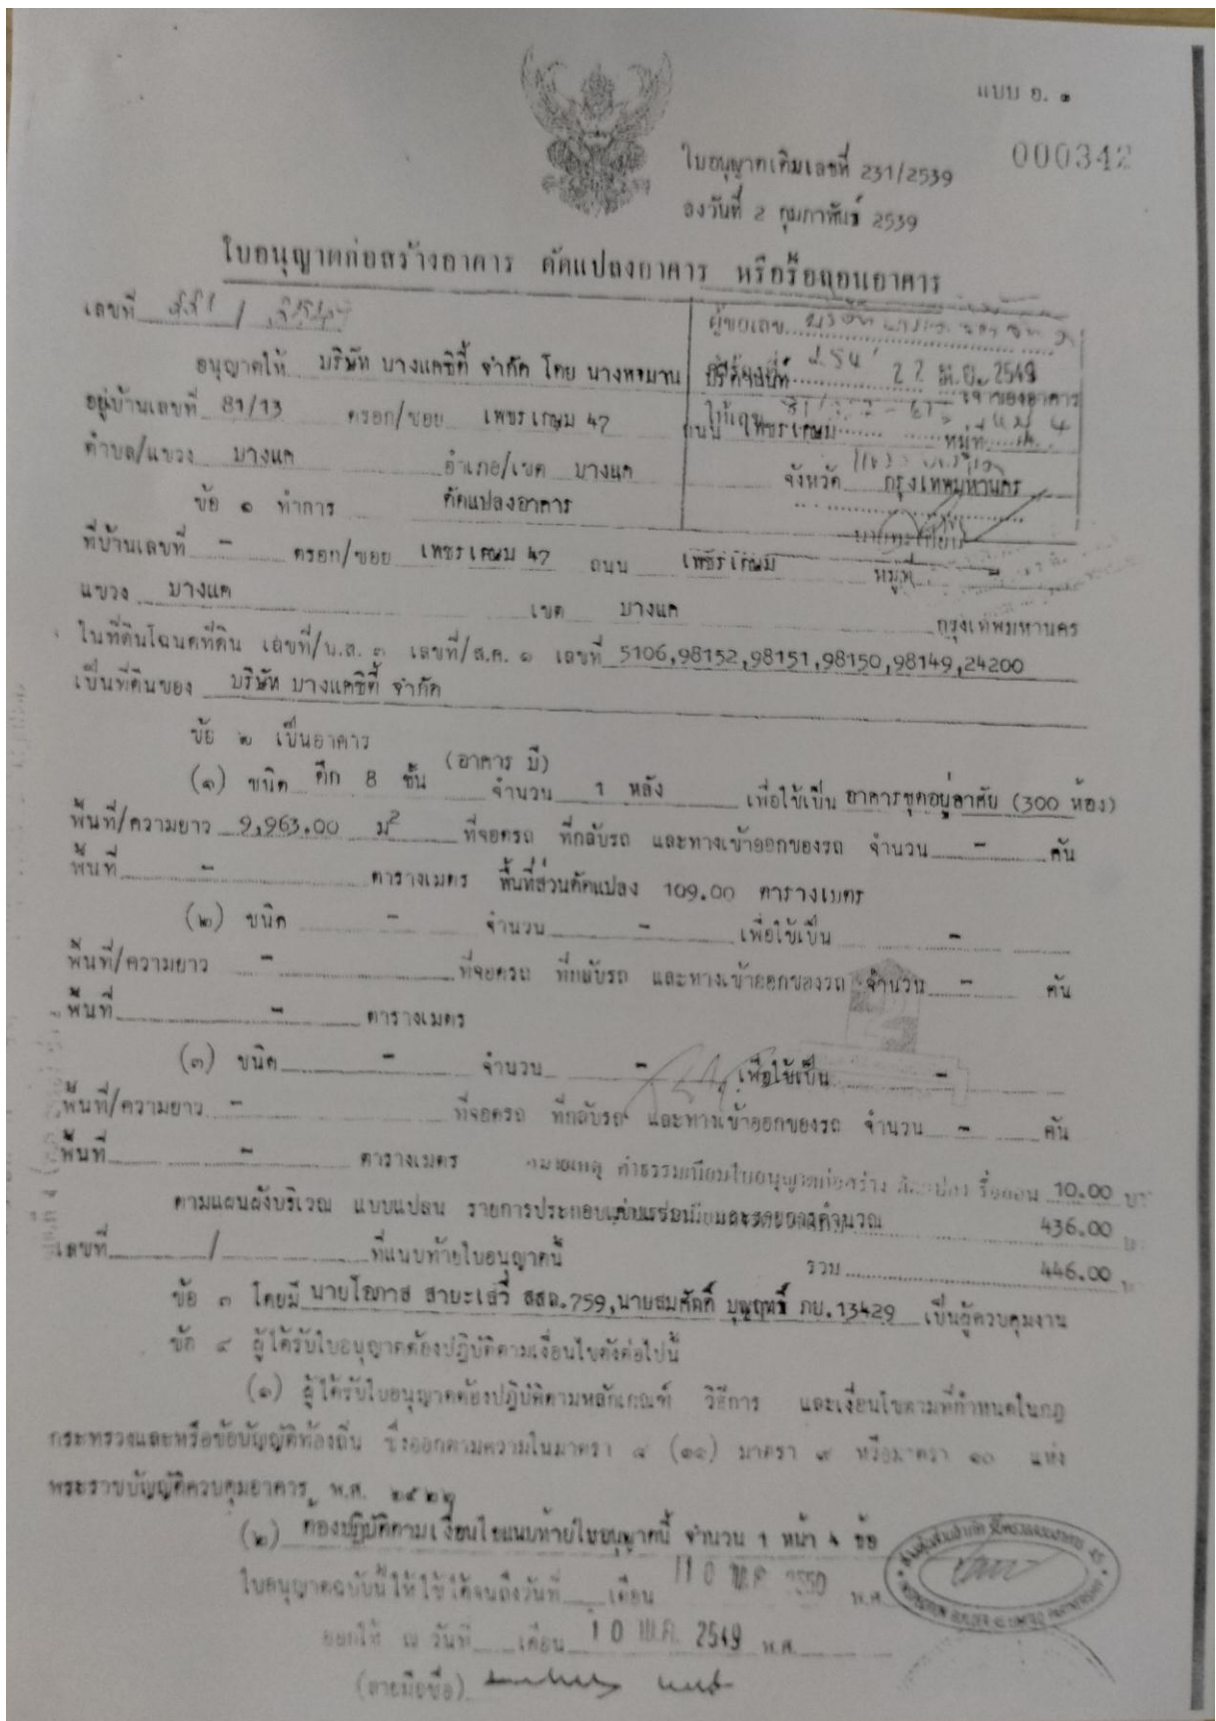 แบบ อ. ๑
000342
ใบอนุญาตเดิมเลขที่ 231/2539
ลงวันที่ 2 กุมภาพันธ์ 2539
ใบอนุญาตก่อสร้างอาคาร ดัดแปลงอาคาร หรือรื้อถอนอาคาร
เลขที่ /
ผู้ขอเลข
อนุญาตให้ บริษัท บางแคซิตี้ จำกัด โดย 22 มิ.ย. 2549
เจ้าของอาคาร
อยู่บ้านเลขที่ 81/13 ตรอก/ซอย เพชรเกษม 47 ถนน เพชรเกษม หมู่ที่
ตำบล/แขวง บางแค อำเภอ/เขต บางแค จังหวัด กรุงเทพมหานคร
ข้อ ๑ ทำการ ดัดแปลงอาคาร
ที่บ้านเลขที่ - ตรอก/ซอย เพชรเกษม 47 ถนน เพชรเกษม หมู่ที่ -
แขวง บางแค เขต บางแค กรุงเทพมหานคร
ในที่ดินโฉนดที่ดิน เลขที่/น.ส. ๓ เลขที่/ส.ค. ๑ เลขที่ 5106,98152,98151,98150,98149,24200
เป็นที่ดินของ บริษัท บางแคซิตี้ จำกัด
ข้อ ๒ เป็นอาคาร
(อาคาร บี)
(๑) ชนิด ตึก 8 ชั้น จำนวน 1 หลัง เพื่อใช้เป็น อาคารชุดอยู่อาศัย (300 ห้อง)
พื้นที่/ความยาว 9,963.00 ม2 ที่จอดรถ ที่กลับรถ และทางเข้าออกของรถ จำนวน - คัน
พื้นที่ - ตารางเมตร พื้นที่ส่วนดัดแปลง 109.00 ตารางเมตร
(๒) ชนิด - จำนวน - เพื่อใช้เป็น -
พื้นที่/ความยาว - ที่จอดรถ ที่กลับรถ และทางเข้าออกของรถ จำนวน - คัน
พื้นที่ - ตารางเมตร
(๓) ชนิด - จำนวน - เพื่อใช้เป็น -
พื้นที่/ความยาว - ที่จอดรถ ที่กลับรถ และทางเข้าออกของรถ จำนวน - คัน
พื้นที่ - ตารางเมตร หมายเหตุ ค่าธรรมเนียมใบอนุญาตก่อสร้าง ดัดแปลง รื้อถอน 10.00 บาท
ตามแผนผังบริเวณ แบบแปลน รายการประกอบแบบแปลน และรายการคำนวณ 436.00
เลขที่ / ที่แนบท้ายใบอนุญาตนี้ รวม 446.00
ข้อ ๓ โดยมี นายโอภาส สายะเสวี สสถ.759,นายสมศักดิ์ บุญฤทธิ์ ภย.13429 เป็นผู้ควบคุมงาน
ข้อ ๔ ผู้ได้รับใบอนุญาตต้องปฏิบัติตามเงื่อนไขดังต่อไปนี้
(๑) ผู้ได้รับใบอนุญาตต้องปฏิบัติตามหลักเกณฑ์ วิธีการ และเงื่อนไขตามที่กำหนดในกฎ
กระทรวงและหรือข้อบัญญัติท้องถิ่น ซึ่งออกตามความในมาตรา ๘ (๑๑) มาตรา ๙ หรือมาตรา ๑๐ แห่ง
พระราชบัญญัติควบคุมอาคาร พ.ศ. ๒๕๒๒
(๒) ต้องปฏิบัติตามเงื่อนไขแนบท้ายใบอนุญาตนี้ จำนวน 1 หน้า 4 ข้อ
ใบอนุญาตฉบับนี้ให้ใช้ได้จนถึงวันที่ เดือน 10 พ.ค. 2550 พ.ศ.
ออกให้ ณ วันที่ เดือน 10 พ.ค. 2549 พ.ศ.
(ลายมือชื่อ)